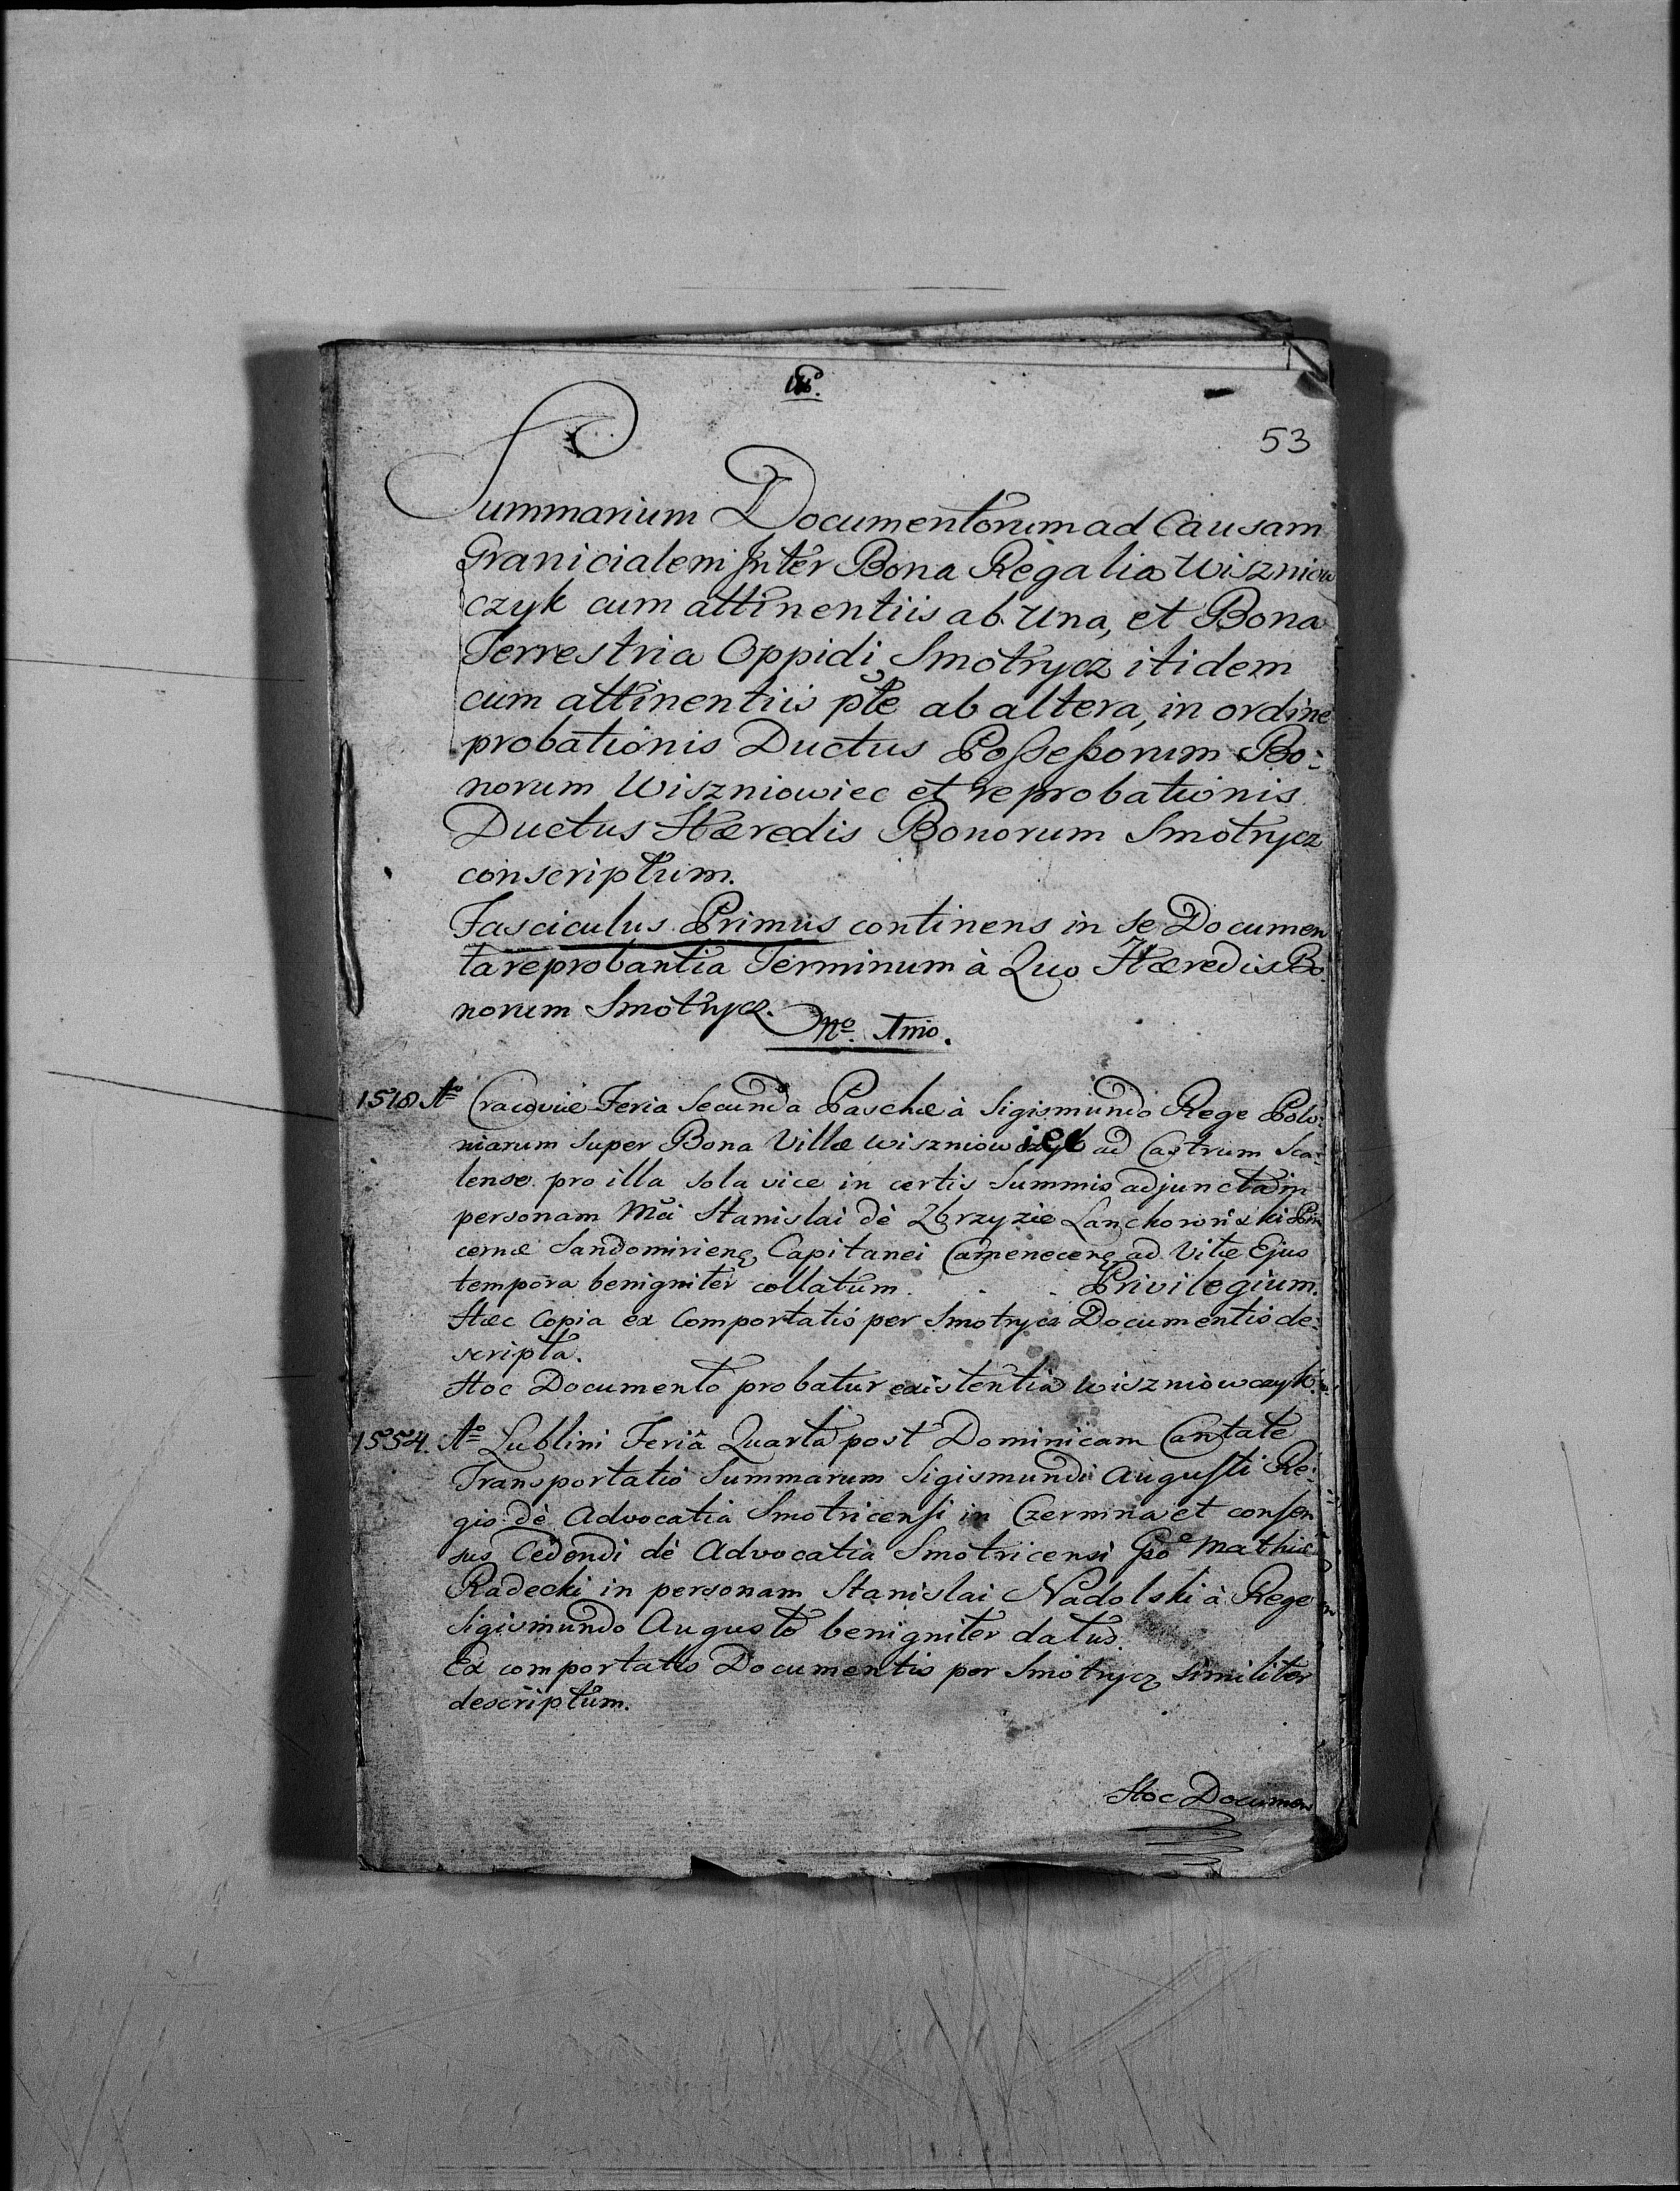 53
Summarium Documentorum ad Causam
Granicialem Inter Bona Regalia Wiszniow
czyk cum attinentiis ab Una, et Bona
Terrestria Oppidi Smotrycz itidem
cum attinentiis pte ab altera, in ordine
probationis Ductus Possessorum Bo:
norum Wiszniowiec et reprobationis
Ductus Hæredis Bonorum Smotrycz
conscriptum.
Fasciculus Primus continens in se Documen
ta reprobantia Terminum à Quo Hæredis Bo
norum Smotrycz.
No. 1mo.
1518 Ao Cracoviæ Feria Secunda Paschæ à Sigismundo Rege Polo:
niarum super Bona Villæ Wiszniowiec ad Castrum Sca:
lense pro illa sola vice in certis Summis adjuncta in
personam Mci Stanislai dè Zbrzyzie Lanckoroński Pin
cernæ Sandomirienę Capitanei Camenecenę ad Vitæ Ejus
tempora benigniter collatum . . . Privilegium.
Hæc Copia ex Comportatis per Smotrycz Documentis de:
scripta.
Hoc Documento probatur existentia Wiszniowczyk
1554. Ao Lublini Feriâ Quarta post Dominicam Cantate
Transportatio Summarum Sigismundi Augusti Re:
gis dè Advocatia Smotricensi in Czermna et consen
sus Cedendi dè Advocatia Smotricensi Gso Mathiæ
Radecki in personam Stanislai Nadolski à Rege
Sigismundo Augusto benigniter datus.
Ex comportatis Documentis per Smotrycz similiter
descriptum.
Hoc Documen